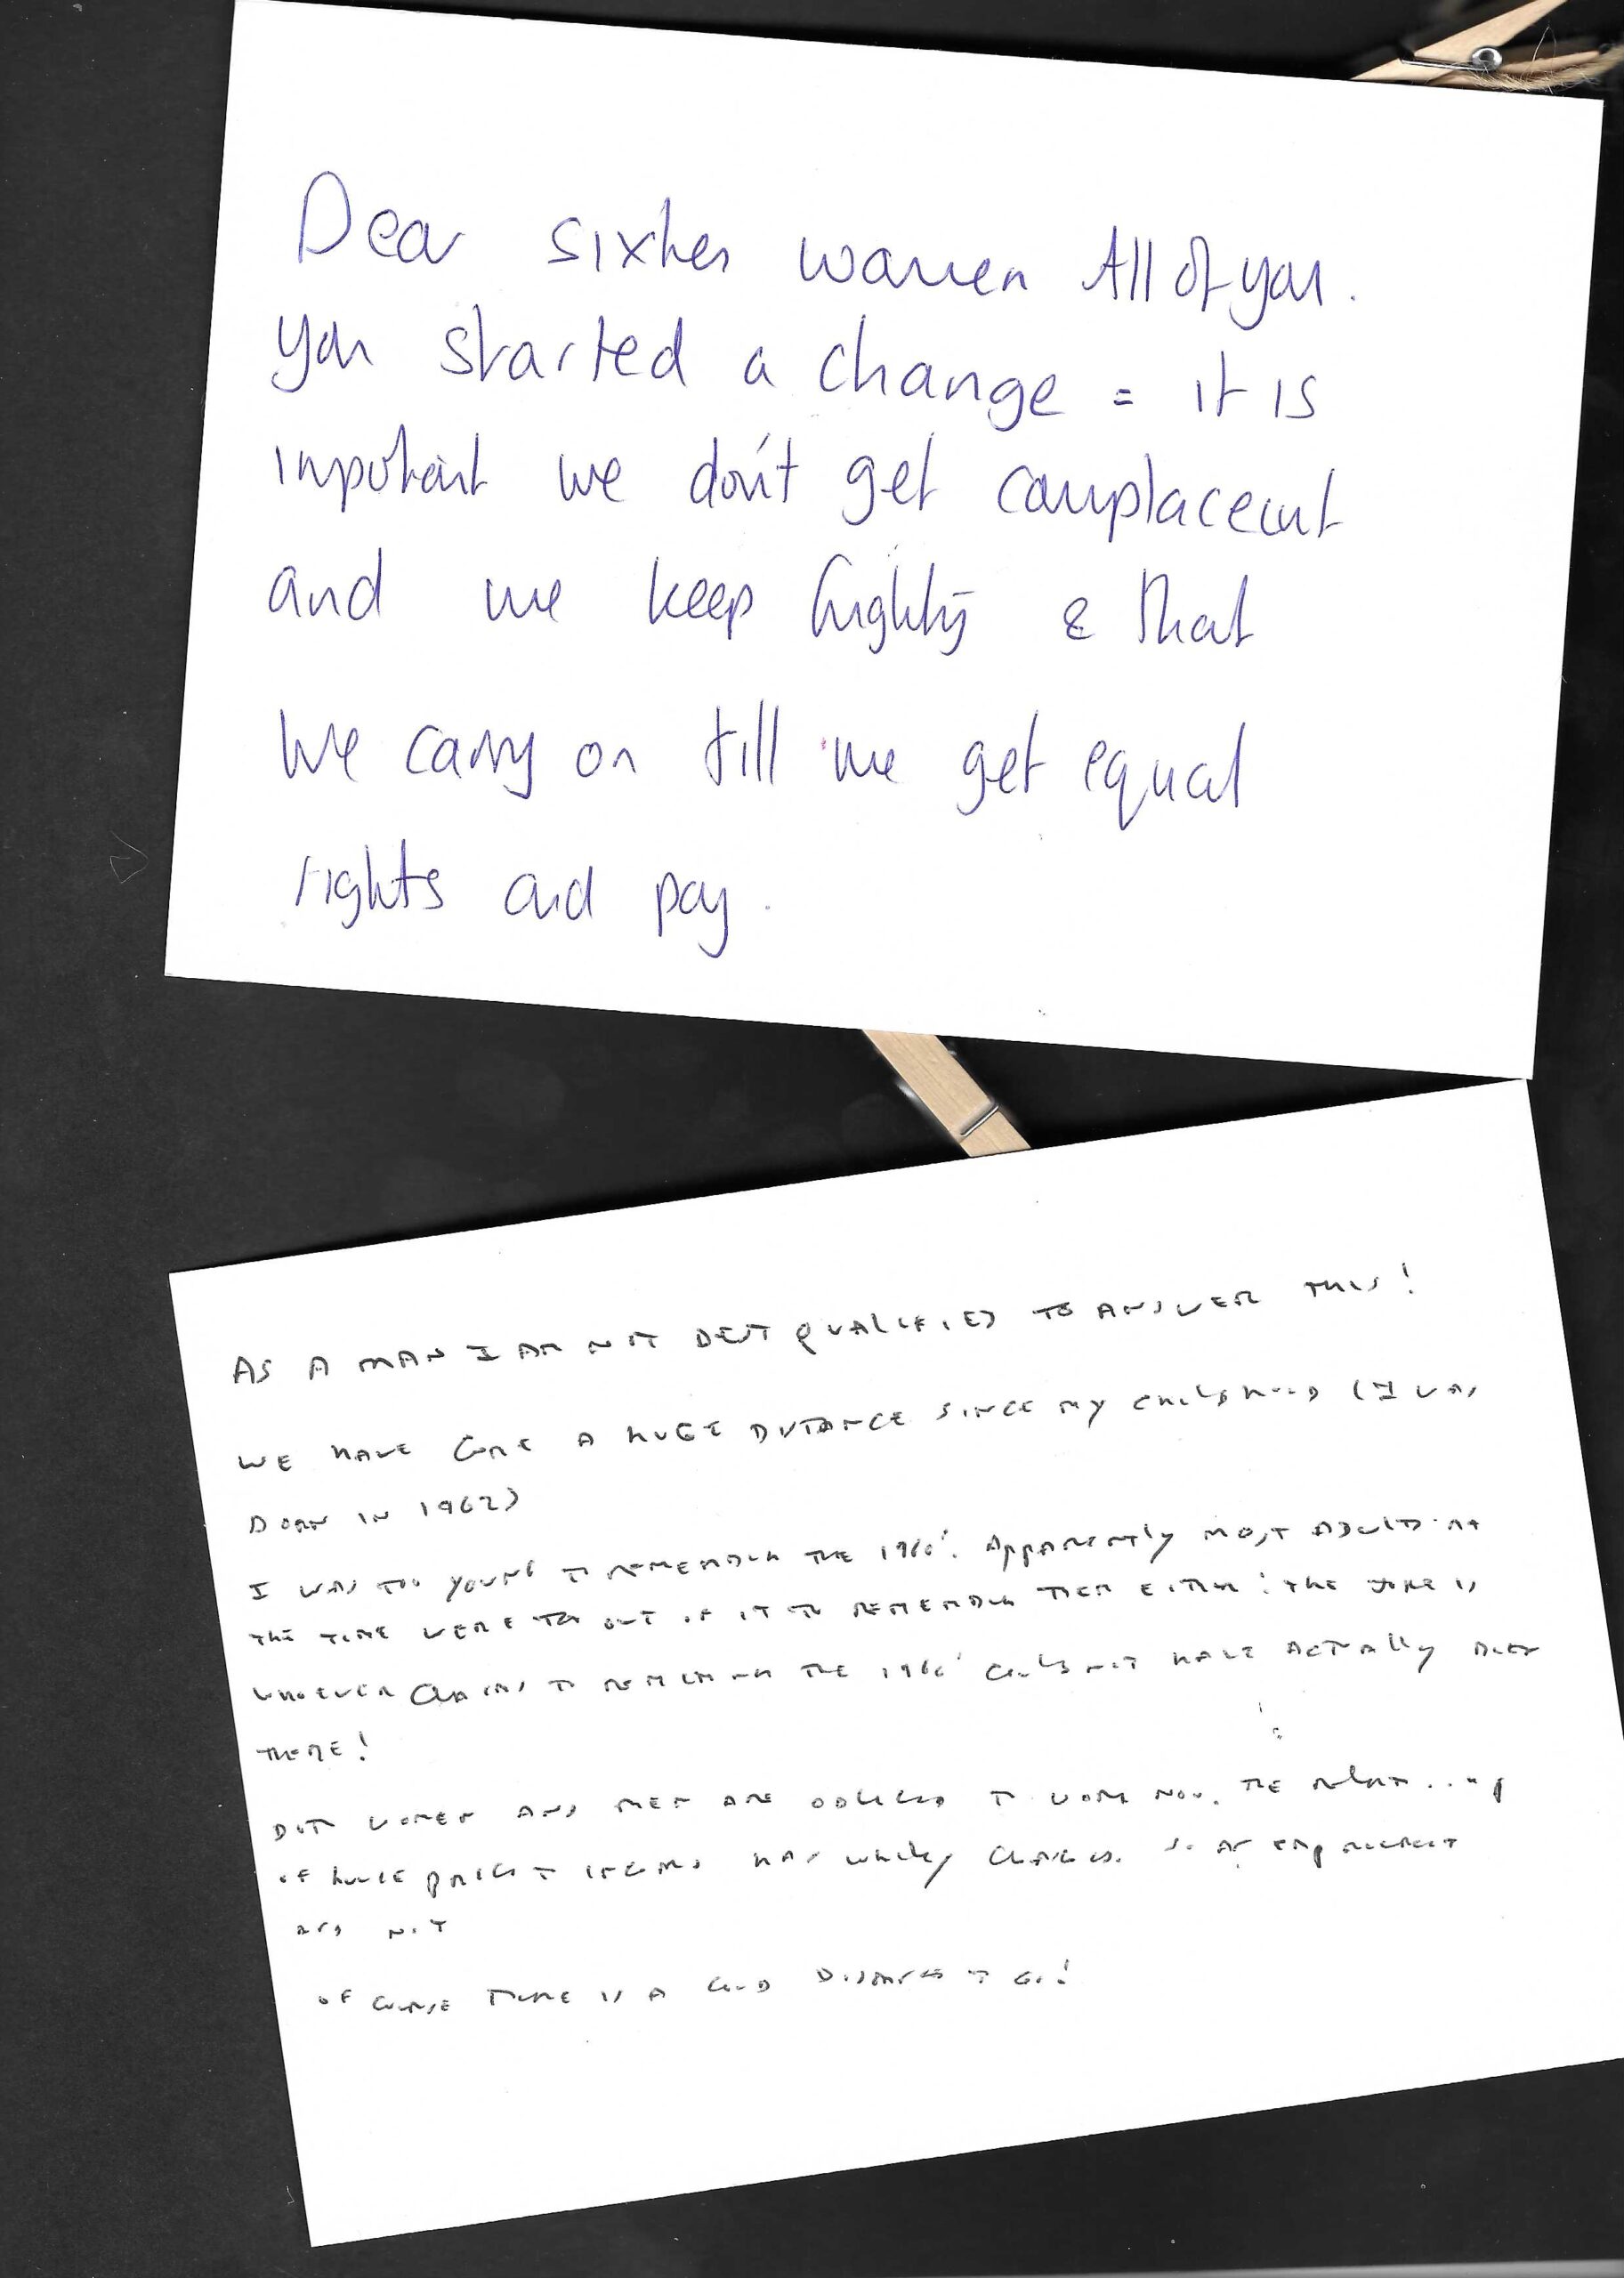 Dear sixties women All of you.
you started a change = it is
important we don't get complacent
and we keep fighting & that
we carry on till we get equal
rights and pay.
AS A MAN I AM NOT BEST QUALIFIED TO ANSWER THIS!
WE HAVE COME A HUGE DISTANCE SINCE MY CHILDHOOD (I WAS
BORN IN 1962)
I WAS TOO YOUNG TO REMEMBER THE 1960'. APPARENTLY MOST ADULTS AT
THE TIME WERE TOO OUT OF IT TO REMEMBER THEM EITHER: THE JOKE IS
WHOEVER CLAIMS TO REMEMBER THE 1960' COULD NOT HAVE ACTUALLY BEEN
THERE!
BOTH WOMEN AND MEN ARE OBLIGED TO WORK NOW. THE RELATIONSHIP
OF HOUSE PRICES TO INCOMES HAS WHOLLY CHANGED. SO AS EMPLOYMENT
AND NOT
OF COURSE THERE IS A GOOD DISTANCE TO GO!